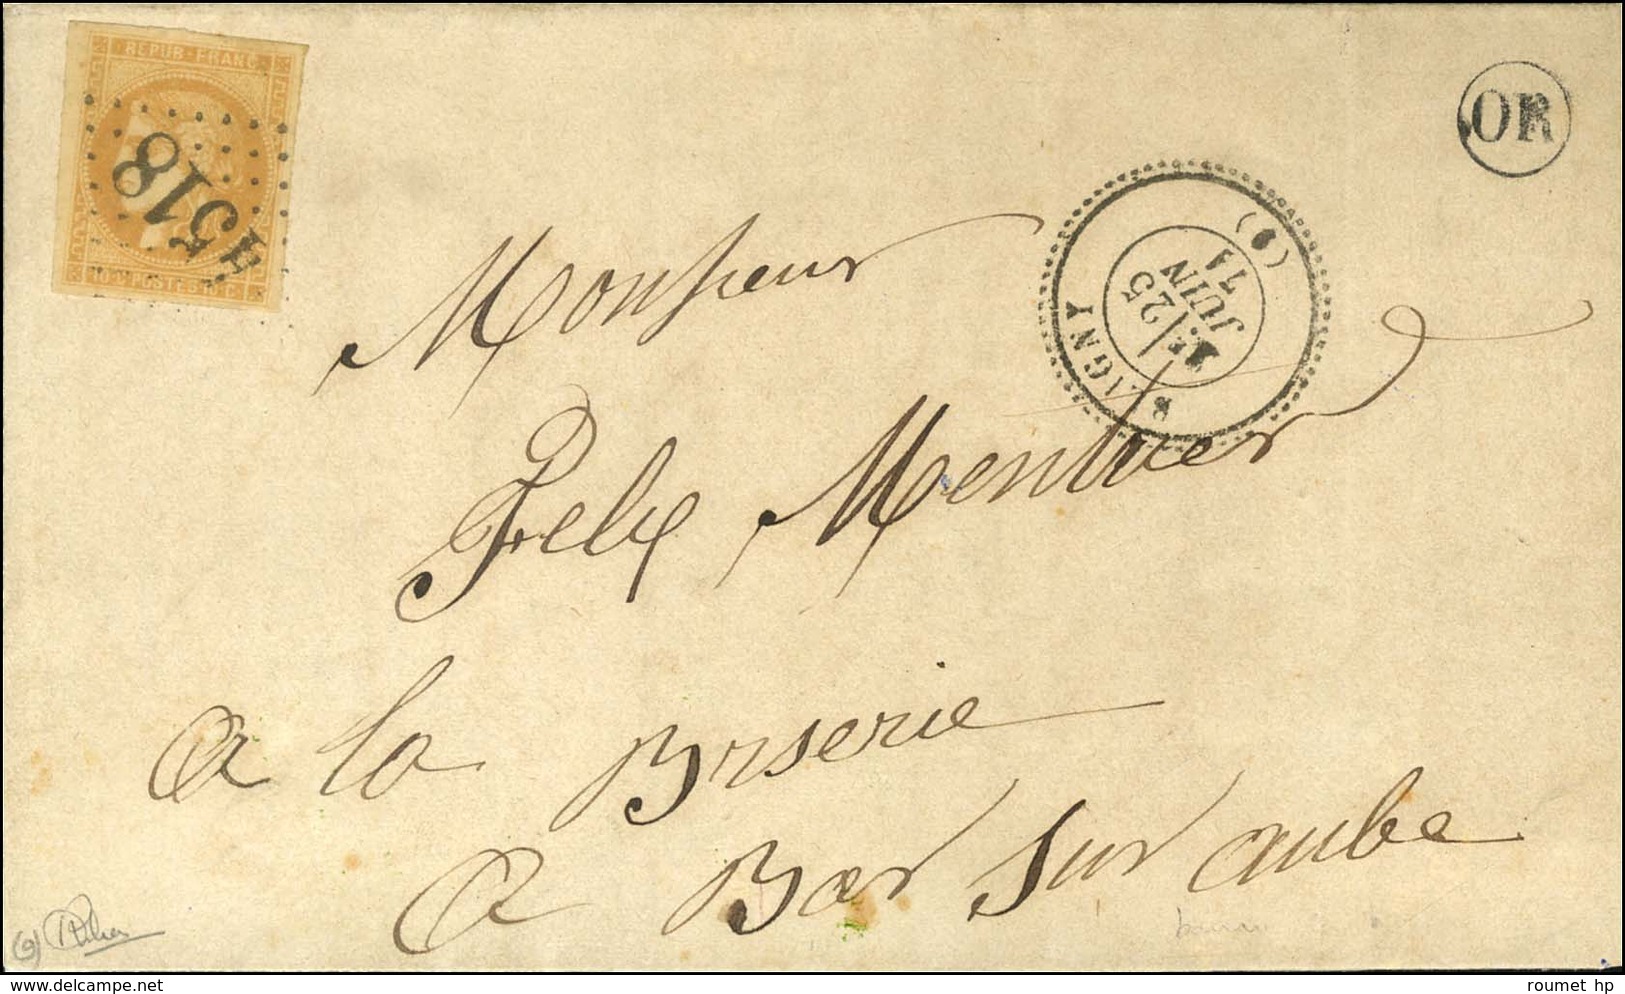 REPUB·FRANC
4518
10·C·POSTES·10·C
OR
(9)
25
JUIN
71
Monsieur
Felix Mentuer
a la Brserie
a Bar sur aube
www.delcampe.net
roumet hp